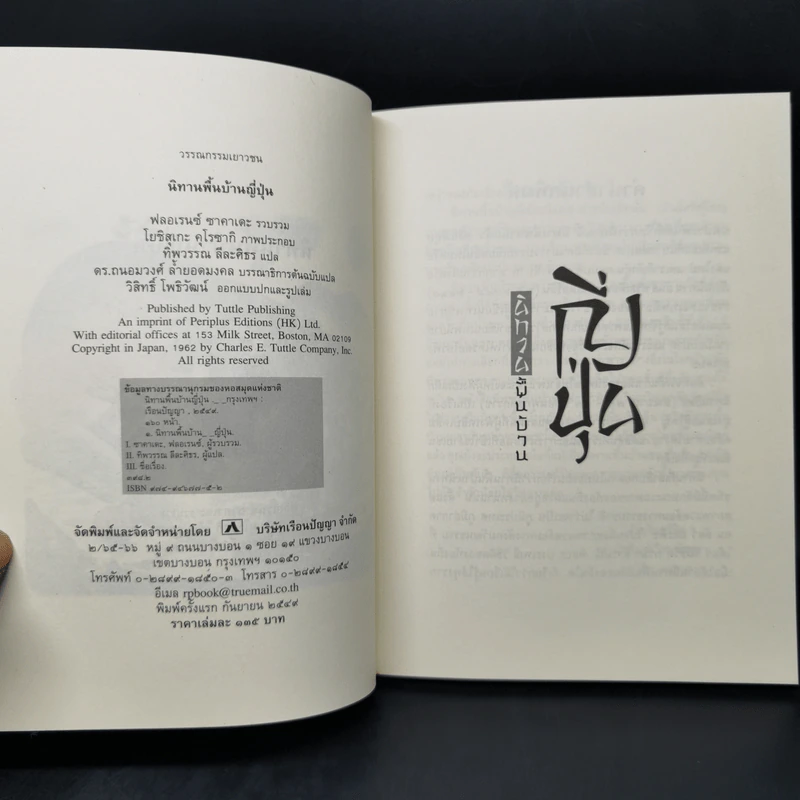 วรรณกรรมเยาวชน
นิทานพื้นบ้านญี่ปุ่น
ฟลอเรนซ์ ซาคาเดะ รวบรวม
โยชิสุเกะ คุโรซากิ ภาพประกอบ
ทิพวรรณ ลีละศิธร แปล
ดร.ถนอมวงศ์ ล้ำยอดมรรคผล บรรณาธิการต้นฉบับแปล
วิสิทธิ์ โพธิวัฒน์ ออกแบบปกและรูปเล่ม
Published by Tuttle Publishing
An imprint of Periplus Editions (HK) Ltd.
With editorial offices at 153 Milk Street, Boston, MA 02109
Copyright in Japan, 1962 by Charles E. Tuttle Company, Inc.
All rights reserved
ข้อมูลทางบรรณานุกรมของหอสมุดแห่งชาติ
นิทานพื้นบ้านญี่ปุ่น._ _กรุงเทพฯ :
เรือนปัญญา, ๒๕๔๙.
๑๖๐ หน้า.
๑. นิทานพื้นบ้าน_ _ญี่ปุ่น.
I. ซาคาเดะ, ฟลอเรนซ์, ผู้รวบรวม.
II. ทิพวรรณ ลีละศิธร, ผู้แปล.
III. ชื่อเรื่อง.
๓๙๘.๒
ISBN ๙๗๔-๙๔๖๗๗-๕-๒
จัดพิมพ์และจัดจำหน่ายโดย บริษัทเรือนปัญญา จำกัด
๒/๖๕-๖๖ หมู่ ๙ ถนนบางบอน ๑ ซอย ๑๙ แขวงบางบอน
เขตบางบอน กรุงเทพฯ ๑๐๑๕๐
โทรศัพท์ ๐-๒๘๙๙-๑๘๕๐-๓ โทรสาร ๐-๒๘๙๙-๑๘๕๔
อีเมล rpbook@truemail.co.th
พิมพ์ครั้งแรก กันยายน ๒๕๔๙
ราคาเล่มละ ๑๓๕ บาท
นิทาน
พื้นบ้าน
ญี่
ปุ่น